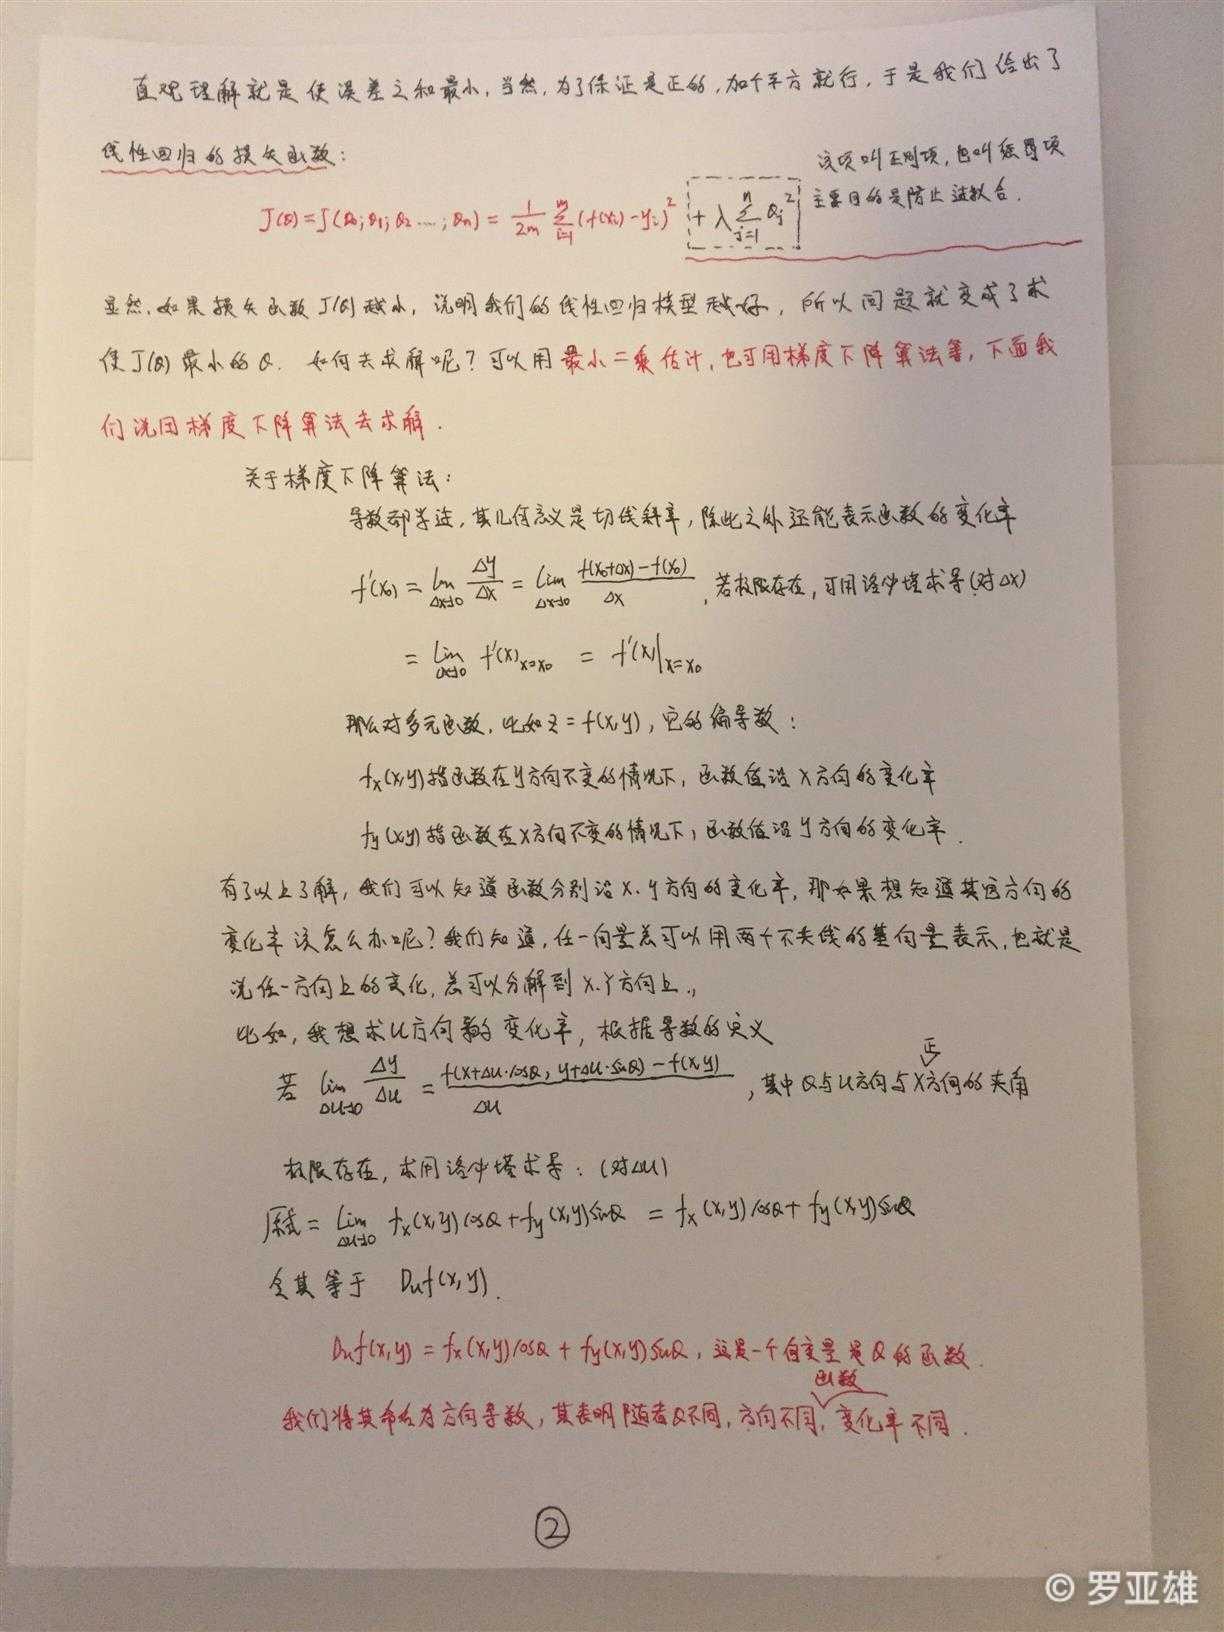 直观理解就是使误差之和最小,当然,为了保证是正的,加个平方就行,于是我们给出了
线性回归的损失函数:
该项叫正则项,也叫惩罚项
主要目的是防止过拟合.
J(θ)=J(θ₀;θ₁;θ₂....;θₙ) = 1/2m Σᵢ₌₁ᵐ (f(xᵢ)-yᵢ)² + λ Σⱼ₌₁ⁿ θⱼ²
显然,如果损失函数J(θ)越小,说明我们的线性回归模型越好,所以问题就变成了求
使J(θ)最小的θ. 如何去求解呢?可以用最小二乘估计,也可用梯度下降算法等,下面我
们说用梯度下降算法去求解.
关于梯度下降算法:
导数都学过,其几何意义是切线斜率,除此之外还能表示函数的变化率
f'(x₀) = lim Δx→0 Δy/Δx = lim Δx→0 (f(x₀+Δx)-f(x₀))/Δx ,若极限存在,可用洛必塔求导(对Δx)
= lim Δx→0 f'(x)ₓ₌ₓ₀ = f'(x)|ₓ₌ₓ₀
那么对多元函数,比如z=f(x,y),它的偏导数:
fx(x,y)指函数在y方向不变的情况下,函数值沿x方向的变化率
fy(x,y)指函数在x方向不变的情况下,函数值沿y方向的变化率.
有了以上了解,我们可以知道函数分别沿x.y方向的变化率,那如果想知道其它方向的
变化率该怎么办呢?我们知道,任一向量总可以用两个不共线的基向量表示,也就是
说任一方向上的变化,总可以分解到x.y方向上.,
比如,我想求u方向的变化率,根据导数的定义
若 lim Δu→0 Δy/Δu = (f(x+Δu·cosθ, y+Δu·sinθ)-f(x,y))/Δu ,其中θ与u方向与x正方向的夹角
极限存在,求用洛必塔求导:(对Δu)
原式= lim Δu→0 fx(x,y)cosθ+fy(x,y)sinθ = fx(x,y)cosθ+fy(x,y)sinθ
令其等于 Duf(x,y).
Duf(x,y) = fx(x,y)cosθ + fy(x,y)sinθ,这是一个自变量是θ的函数.
我们将其命名为方向导数,其表明随着θ不同,方向不同,函数变化率不同.
②
© 罗亚雄